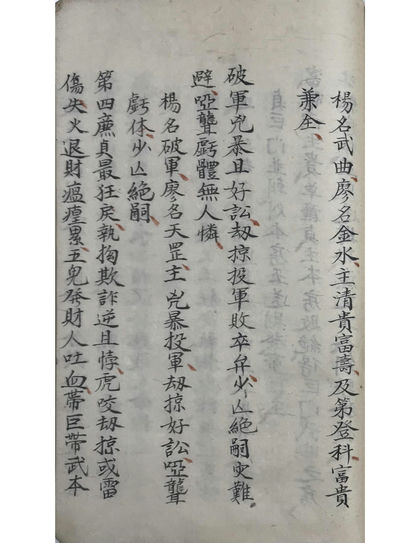 楊名武曲廖名金水主清貴富壽及第登科富貴
兼全
破軍兇暴且好訟刼掠投軍敗卒弁少亾絶嗣更難
避啞聾虧體無人憐
楊名破軍廖名天罡主兇暴投軍刼掠好訟啞聾
虧体少亾絶嗣
第四廉貞最狂戾執拗欺詐逆且悖虎咬刼掠或雷
傷失火退財瘟㾮累五鬼發財人吐血帶巨帶武本